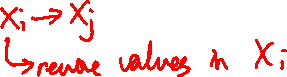 Xi → Xj
↳ remove values in Xi